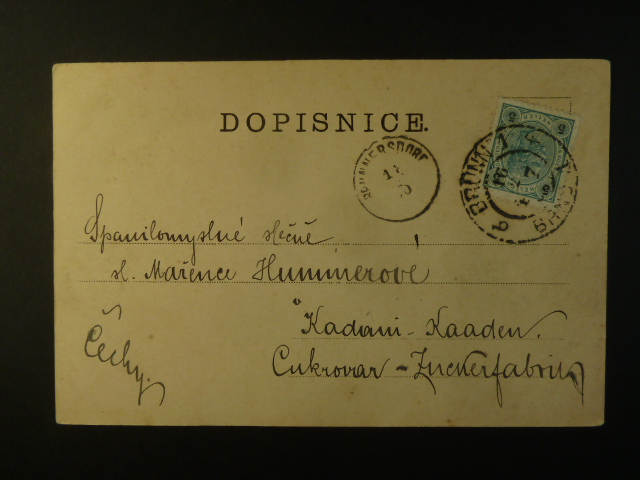 DOPISNICE.
BRUNNERSDORF
BRÜNN
BRNO
5 5
Spanilomyslné slečně
sl. Mařence Hummerové
Kadani-Kaaden.
Cukrovar - Zuckerfabrik
Čechy.